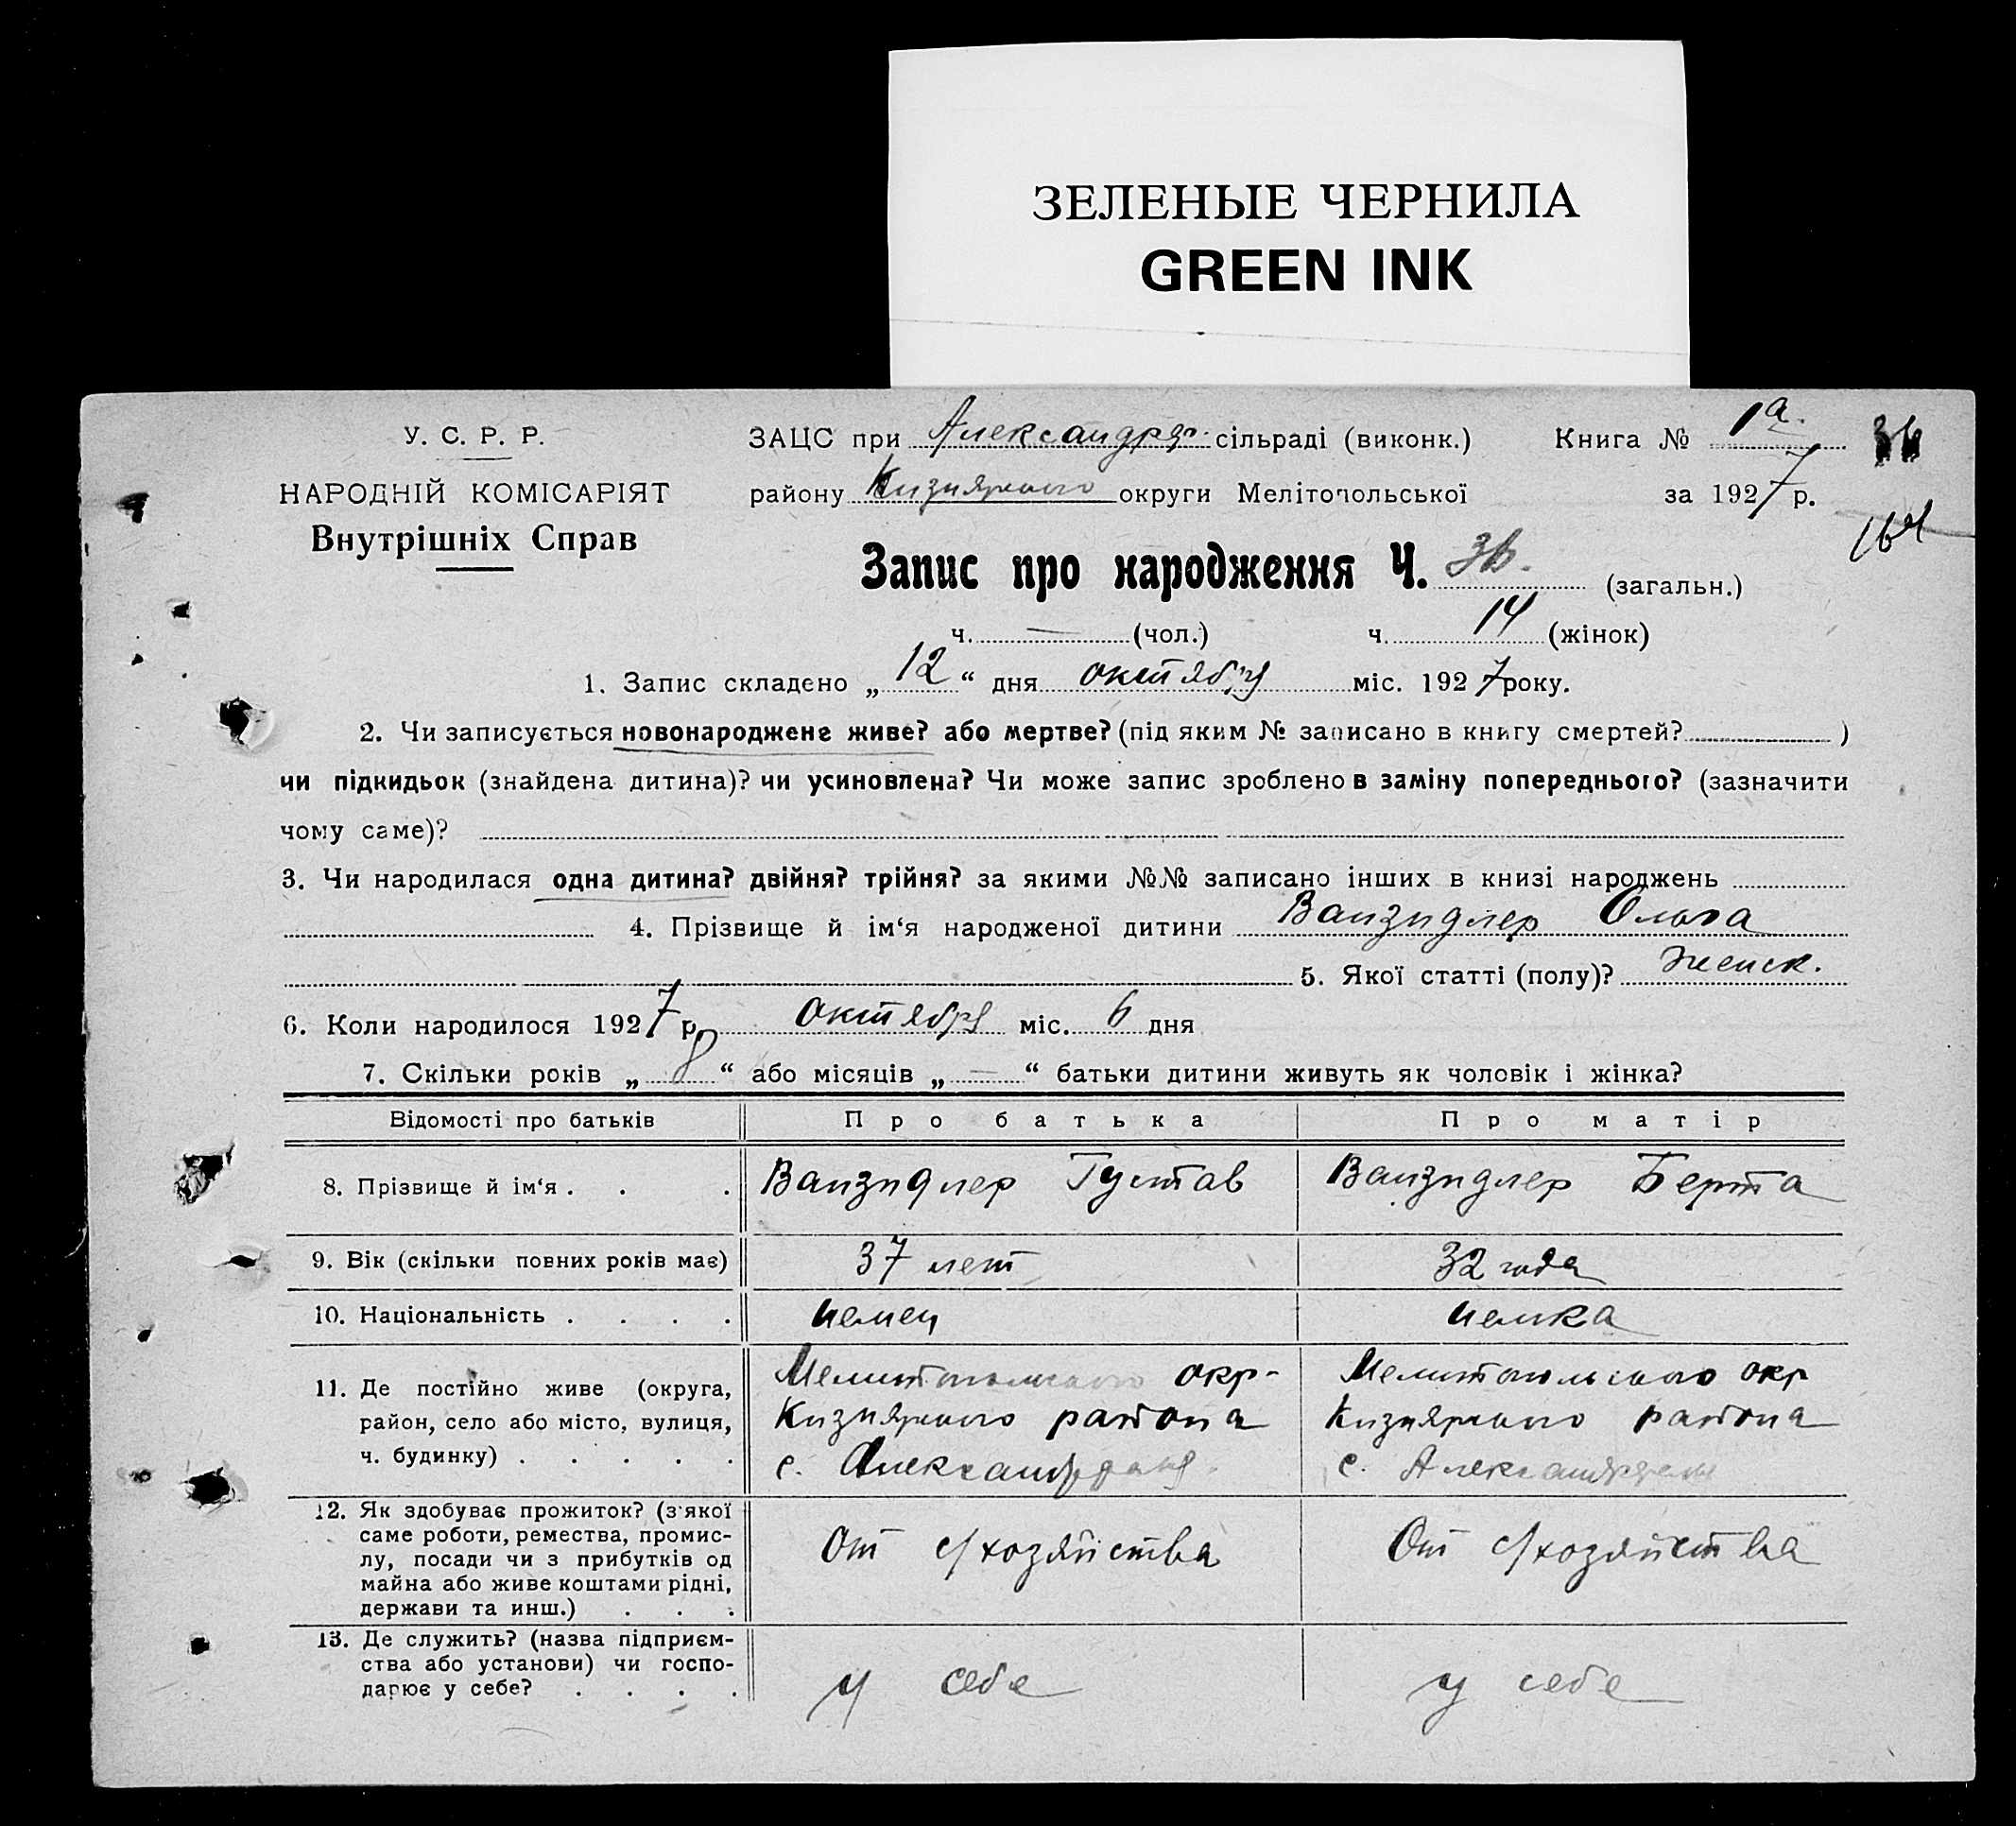 ЗЕЛЕНЫЕ ЧЕРНИЛА
GREEN INK
У. С. Р. Р.
НАРОДНІЙ КОМІСАРІЯТ
Внутрішніх Справ
ЗАЦС при Александр. сільраді (виконк.) Книга № 1а.
району Кизиярского округи Мелітопольської за 1927 р.
36
164
Запис про народження Ч. 36. (загальн.)
ч. — (чол.) ч. 14 (жінок)
1. Запис складено „ 12 “ дня октября міс. 1927 року.
2. Чи записується новонароджене живе? або мертве? (під яким № записано в книгу смертей? )
чи підкидьок (знайдена дитина)? чи усиновлена? Чи може запис зроблено в заміну попереднього? (зазначити
чому саме)?
3. Чи народилася одна дитина? двійня? трійня? за якими №№ записано інших в книзі народжень
4. Прізвище й ім‘я народженої дитини Ванзидлер Ольга
5. Якої статті (полу)? женск.
6. Коли народилося 1927 р. октября міс. 6 дня
7. Скільки років „ 8 “ або місяців „ — “ батьки дитини живуть як чоловік і жінка?
Відомості про батьків Про батька Про матір
8. Прізвище й ім‘я . . . Ванзидлер Густав Ванзидлер Берта
9. Вік (скільки повних років має) 37 лет 32 года
10. Національність . . . . немец немка
11. Де постійно живе (округа,
район, село або місто, вулиця,
ч. будинку) . . . . .
Мелитопольского окр-
Кизиярского района
с.
Мелитопольского окр
Кизиярского района
с.
12. Як здобуває прожиток? (з якої
саме роботи, ремества, промис-
лу, посади чи з прибутків од
майна або живе коштами рідні,
держави та инш.) . . .
От с/хозяйства
От с/хозяйства
13. Де служить? (назва підприєм-
ства або установи) чи госпо-
дарює у себе? . . . .
у себе
у себе